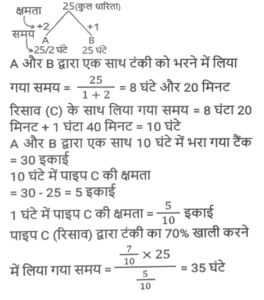 25(कुल धारिता)
क्षमता
+2 +1
समय
A B
25/2 घंटे 25 घंटे
A और B द्वारा एक साथ टंकी को भरने में लिया
गया समय = 25/(1 + 2) = 8 घंटे और 20 मिनट
रिसाव (C) के साथ लिया गया समय = 8 घंटा 20
मिनट + 1 घंटा 40 मिनट = 10 घंटे
A और B द्वारा एक साथ 10 घंटे में भरा गया टैंक
= 30 इकाई
10 घंटे में पाइप C की क्षमता
= 30 - 25 = 5 इकाई
1 घंटे में पाइप C की क्षमता = 5/10 इकाई
पाइप C (रिसाव) द्वारा टंकी का 70% खाली करने
में लिया गया समय = (7/10 × 25)/(5/10) = 35 घंटे